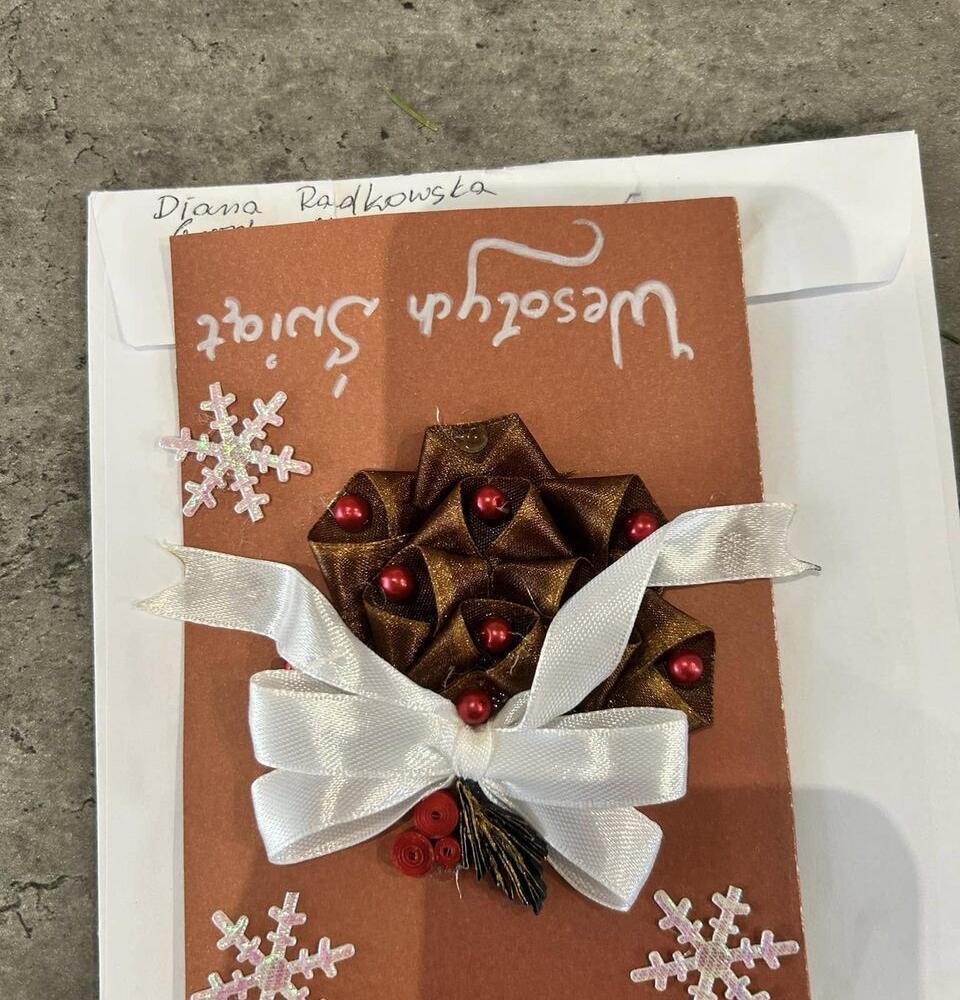 Diana Radkowska
Wesołych Świąt